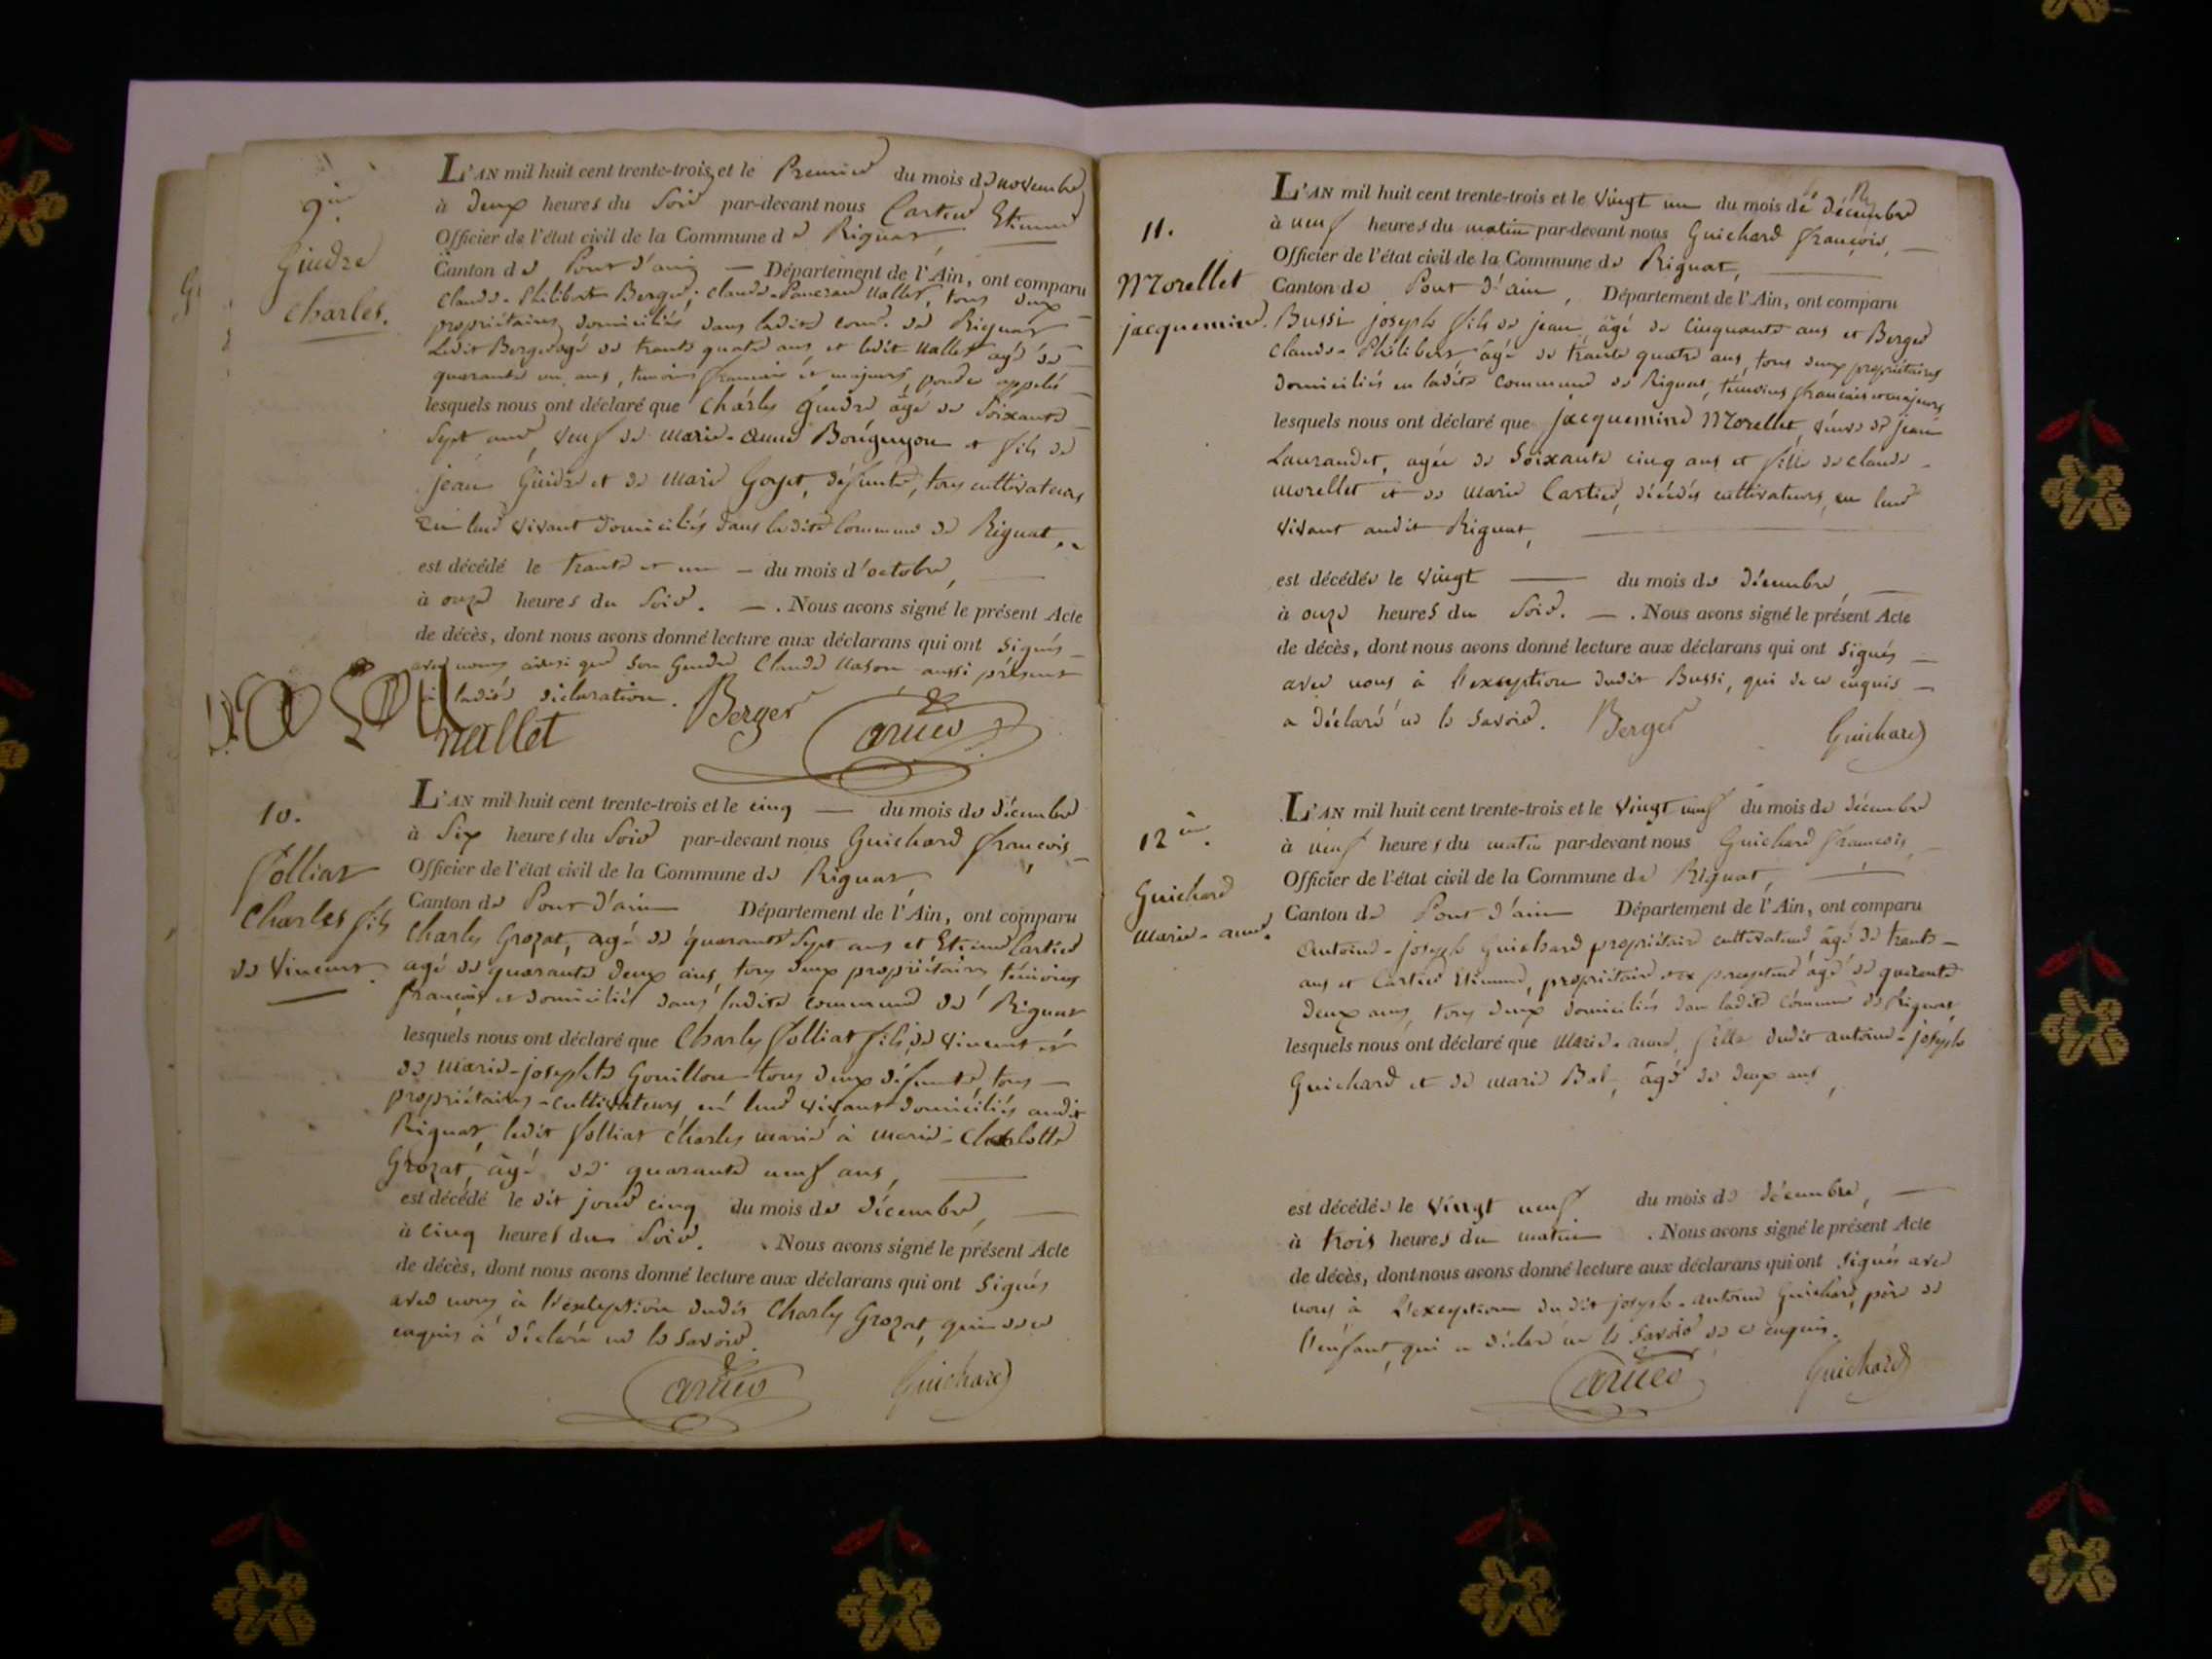 9.me
Guidre
Charles.
L'AN mil huit cent trente-trois et le Premier du mois de novembre
à Deux heures du Soir par-devant nous Cartier Etienne
Officier de l'état civil de la Commune de Rignat,
Canton de Pont d'ain — Département de l'Ain, ont comparu
Claude-Philibert Berger, Claude-Pancrace Nallet, tous deux
propriétaires domiciliés dans ladite com.e de Rignat
Ledit Berger agé de trente quatre ans, et ledit Nallet agé de
quarante un ans, temoins français et majeurs, pour ce appelés
lesquels nous ont déclaré que Charles Guidre âgé de Soixante
Sept ans, Veuf de Marie-Anne et fils de
jean Guidre et de Marie Goyet, défunts, tous cultivateurs
en leur vivant domiciliés dans ladite Commune de Rignat,
est décédé le trente et un — du mois d'octobre,
à onze heures du Soir. — . Nous avons signé le présent Acte
de décès, dont nous avons donné lecture aux déclarans qui ont signés
avec nous ainsi que son Gendre Claude Nason aussi présent
à ladite déclaration.
nallet Berger Cartier
10.
Folliat
Charles fils
de Vincent.
L'AN mil huit cent trente-trois et le cinq — du mois de décembre
à Six heures du Soir par-devant nous Guichard françois
Officier de l'état civil de la Commune de Rignat,
Canton de Pont d'ain Département de l'Ain, ont comparu
Charles Grozat, agé de quarante Sept ans et Etienne Cartier
agé de quarante deux ans, tous deux propriétaires, témoins
français et domiciliés dans ladite commune de Rignat
lesquels nous ont déclaré que Charles Folliat fils de Vincent et
de Marie-josephte Gouillon tous deux défunts, tous
propriétaires-cultivateurs, en leur vivant domiciliés audit
Rignat, ledit Folliat Charles marié à Marie-Charlotte
Grozat, âgé de quarante neuf ans,
est décédé le dit jour cinq du mois de décembre,
à cinq heures du Soir. . Nous avons signé le présent Acte
de décès, dont nous avons donné lecture aux déclarans qui ont signés
avec nous à l'exception dudit Charles Grozat, qui de ce
enquis à déclaré ne le savoir.
Cartier Guichard
11.
Morellet
jacquemine.
L'AN mil huit cent trente-trois et le Vingt un du mois de décembre
à neuf heures du matin par-devant nous Guichard françois,
Officier de l'état civil de la Commune de Rignat,
Canton de Pont d'ain, Département de l'Ain, ont comparu
Bussi joseph fils de jean, âgé de Cinquante ans et Berger
Claude-Philibert âgé de trente quatre ans, tous deux propriétaires
domiciliés en ladite Commune de Rignat, témoins français et majeurs
lesquels nous ont déclaré que jacquemine Morellet, veuve de jean
Laurandet, agée de Soixante cinq ans et fille de Claude
Morellet et de Marie Cartier, décédés cultivateurs, en leur
vivant audit Rignat,
est décédée le Vingt — du mois de décembre,
à onze heures du Soir. — . Nous avons signé le présent Acte
de décès, dont nous avons donné lecture aux déclarans qui ont signés
avec nous à l'exception dudit Bussi, qui de ce enquis
a déclaré ne le savoir. Berger Guichard
12.e
Guichard
Marie-anne.
L'AN mil huit cent trente-trois et le Vingt neuf du mois de décembre
à neuf heures du matin par-devant nous Guichard françois,
Officier de l'état civil de la Commune de Rignat,
Canton de Pont d'ain Département de l'Ain, ont comparu
Antoine-joseph Guichard propriétaire cultivateur âgé de trente
ans et Cartier Etienne, propriétaire et ex percepteur âgé de quarante
deux ans, tous deux domiciliés dans ladite Commune de Rignat,
lesquels nous ont déclaré que Marie-anne, fille dudit antoine-joseph
Guichard et de Marie Bal, âgé de deux ans,
est décédée le Vingt neuf du mois de décembre,
à trois heures du matin . Nous avons signé le présent Acte
de décès, dont nous avons donné lecture aux déclarans qui ont signés avec
nous à l'exception dudit joseph-antoine Guichard, père de
l'enfant, qui a déclaré ne le savoir de ce enquis.
Cartier Guichard